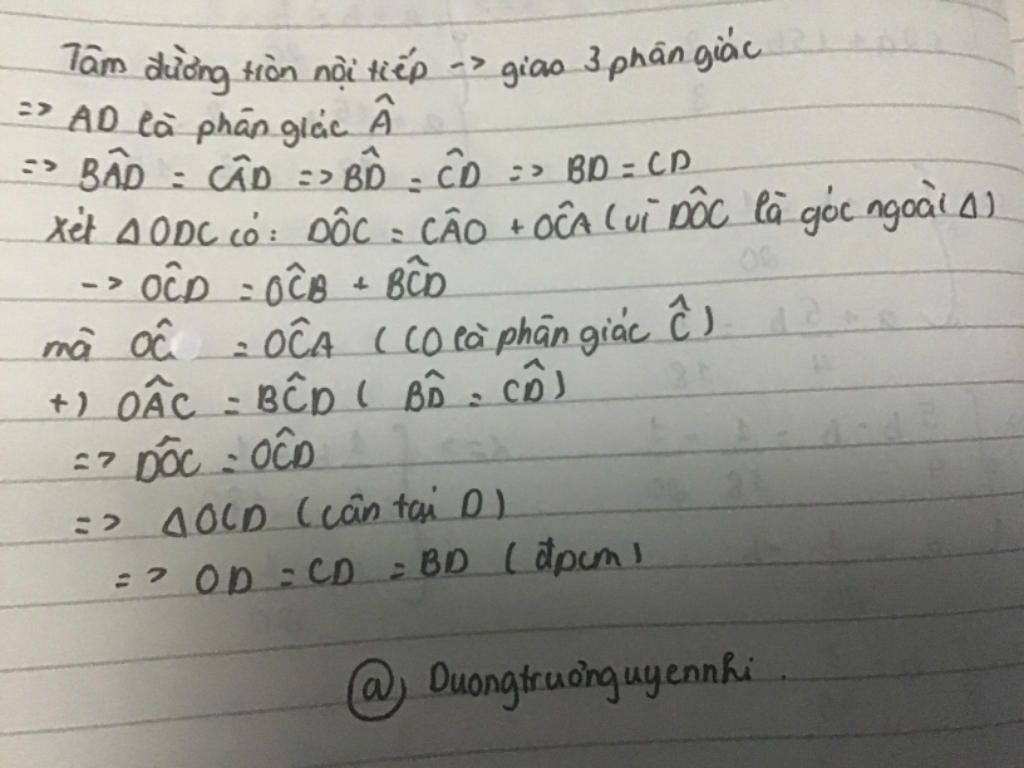 Tâm đường tròn nội tiếp -> giao 3 phân giác
=> AD là phân giác Â
=> BÂD = CÂD => BD̂ = ĈD => BD = CD
Xét ΔODC có: DÔC = CÂO + OĈA (vì DÔC là góc ngoài Δ)
-> OĈD = OĈB + BĈD
mà OĈ = OĈA (CO là phân giác Ĉ)
+) OÂC = BĈD ( BD̂ = CD̂ )
=> DÔC = OĈD
=> ΔOCD (cân tại D)
=> OD = CD = BD (đpcm)
@, Duongtruonguyennhi.